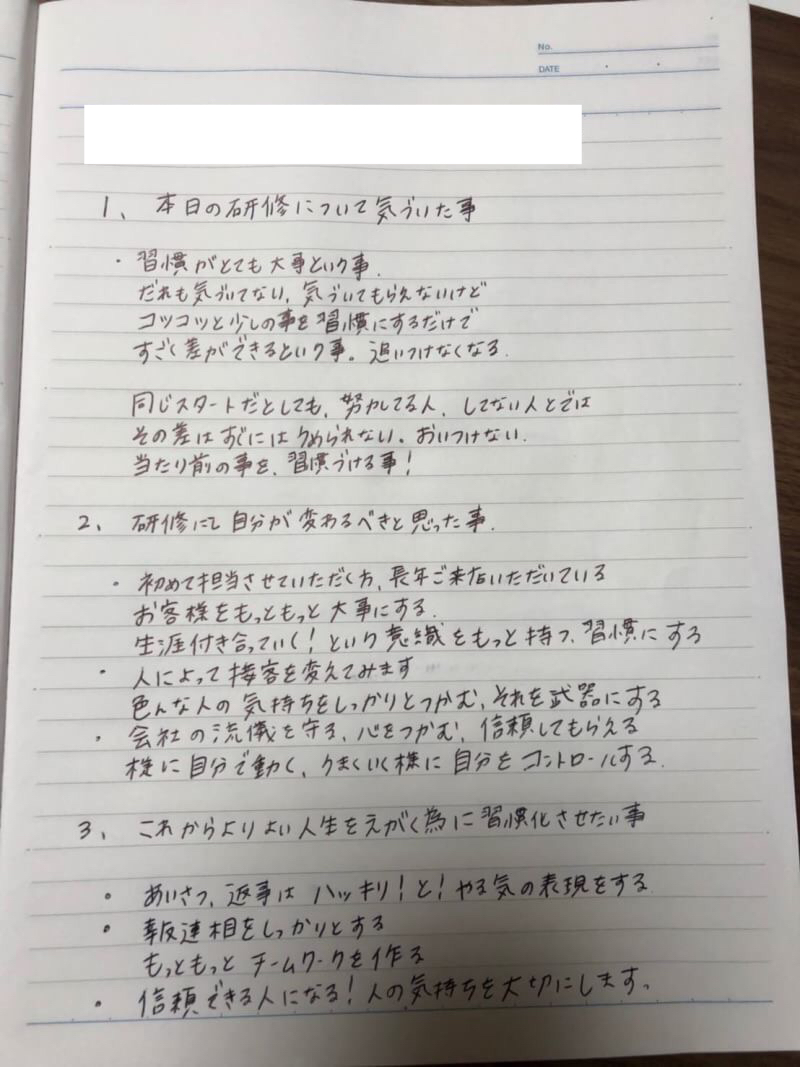 No.
DATE
1、本日の研修について気づいた事
・習慣がとても大事という事.
だれも気づいてない、気づいてもらえないけど
コツコツと少しの事を習慣にするだけで
すごく差ができるという事。追いつけなくなる.
同じスタートだとしても、努力してる人、してない人とでは
その差はすぐにはうめられない。おいつけない.
当たり前の事を、習慣づける事!
2、研修にて自分が変わるべきと思った事.
・初めて担当させていただく方、長年ご来店いただいている
お客様をもっともっと大事にする.
生涯付き合っていく!という意識をもっと持つ、習慣にする
・人によって接客を変えてみます
色んな人の気持ちをしっかりとつかむ、それを武器にする
・会社の流儀を守る、心をつかむ、信頼してもらえる
様に自分で動く、うまくいく様に自分をコントロールする.
3、これからよりよい人生をえがく為に習慣化させたい事
・あいさつ、返事はハッキリ!と!やる気の表現をする
・報連相をしっかりとする
もっともっとチームワークを作る
・信頼できる人になる!人の気持ちを大切にします。